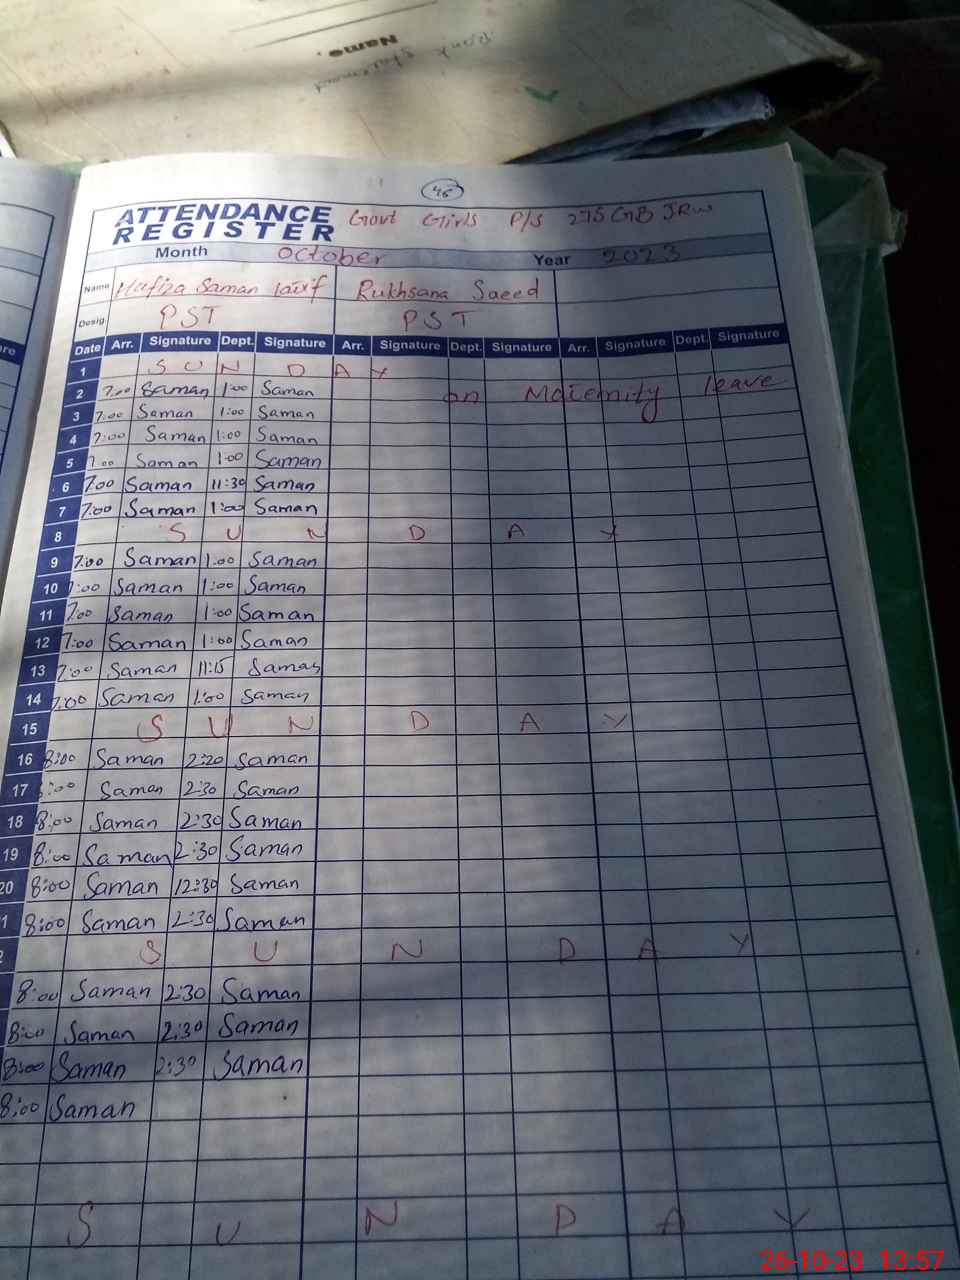 Name.
46
ATTENDANCE REGISTER Govt Girls P/S 275 GB JRW
Month October Year 2023
Name Hafiza Saman Rukhsana Saeed
Desig. PST PST
Date Arr. Signature Dept. Signature Arr. Signature Dept. Signature Arr. Signature Dept. Signature
1 S U N D A Y
2 7:00 Saman 1:00 Saman on Maternity leave
3 7:00 Saman 1:00 Saman
4 7:00 Saman 1:00 Saman
5 7:00 Saman 1:00 Saman
6 7:00 Saman 11:30 Saman
7 7:00 Saman 1:00 Saman
8 S U N D A Y
9 7:00 Saman 1:00 Saman
10 7:00 Saman 1:00 Saman
11 7:00 Saman 1:00 Saman
12 7:00 Saman 1:00 Saman
13 7:00 Saman 11:15 Saman
14 7:00 Saman 1:00 Saman
15 S U N D A Y
16 8:00 Saman 2:20 Saman
17 8:00 Saman 2:30 Saman
18 8:00 Saman 2:30 Saman
19 8:00 Saman 2:30 Saman
20 8:00 Saman 12:30 Saman
1 8:00 Saman 2:30 Saman
2 S U N D A Y
8:00 Saman 2:30 Saman
8:00 Saman 2:30 Saman
8:00 Saman 2:30 Saman
8:00 Saman
S U N D A Y
26-10-23 13:57